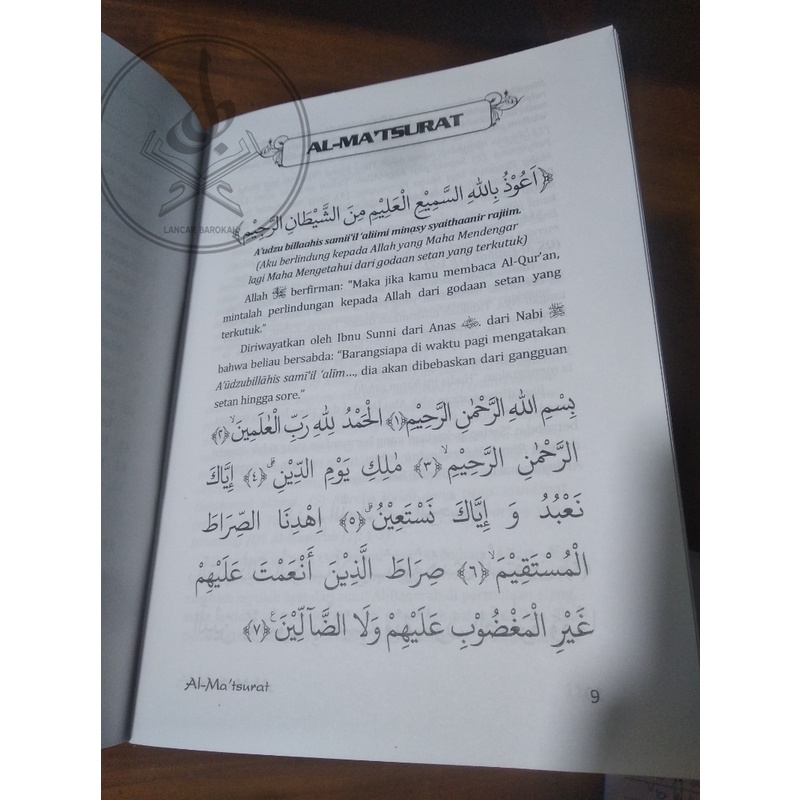 LANCAR BAROKAH
AL-MA'TSURAT
﴿اَعُوْذُ بِاللهِ السَّمِيْعِ الْعَلِيْمِ مِنَ الشَّيْطَانِ الرَّجِيْمِ﴾
A'udzu billaahis samii'il 'aliimi minasy syaithaanir rajiim.
(Aku berlindung kepada Allah yang Maha Mendengar
lagi Maha Mengetahui dari godaan setan yang terkutuk)
Allah ﷻ berfirman: "Maka jika kamu membaca Al-Qur'an,
mintalah perlindungan kepada Allah dari godaan setan yang
terkutuk."
Diriwayatkan oleh Ibnu Sunni dari Anas , dari Nabi ﷺ
bahwa beliau bersabda: "Barangsiapa di waktu pagi mengatakan
A'ūdzubillāhis samī'il 'alīm..., dia akan dibebaskan dari gangguan
setan hingga sore."
بِسْمِ اللهِ الرَّحْمٰنِ الرَّحِيْمِ ﴿١﴾ اَلْحَمْدُ لِلّٰهِ رَبِّ الْعٰلَمِيْنَۙ ﴿٢﴾
الرَّحْمٰنِ الرَّحِيْمِۙ ﴿٣﴾ مٰلِكِ يَوْمِ الدِّيْنِۗ ﴿٤﴾ إِيَّاكَ
نَعْبُدُ وَ إِيَّاكَ نَسْتَعِيْنُۗ ﴿٥﴾ اِهْدِنَا الصِّرَاطَ
الْمُسْتَقِيْمَۙ ﴿٦﴾ صِرَاطَ الَّذِيْنَ أَنْعَمْتَ عَلَيْهِمْ
غَيْرِ الْمَغْضُوْبِ عَلَيْهِمْ وَلَا الضَّآلِّيْنَࣖ ﴿٧﴾
Al-Ma'tsurat
9